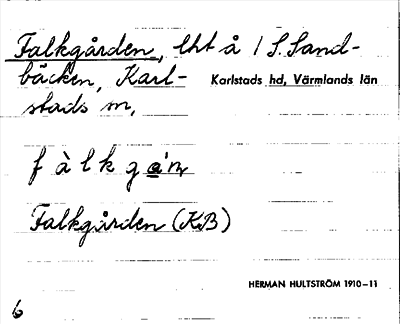 Falkgården, lht å 1 S. Sand-
bäcken, Karl- Karlstads hd, Värmlands län
stads m,
f à l k g
Falkgården (KB)
HERMAN HULTSTRÖM 1910–11
6